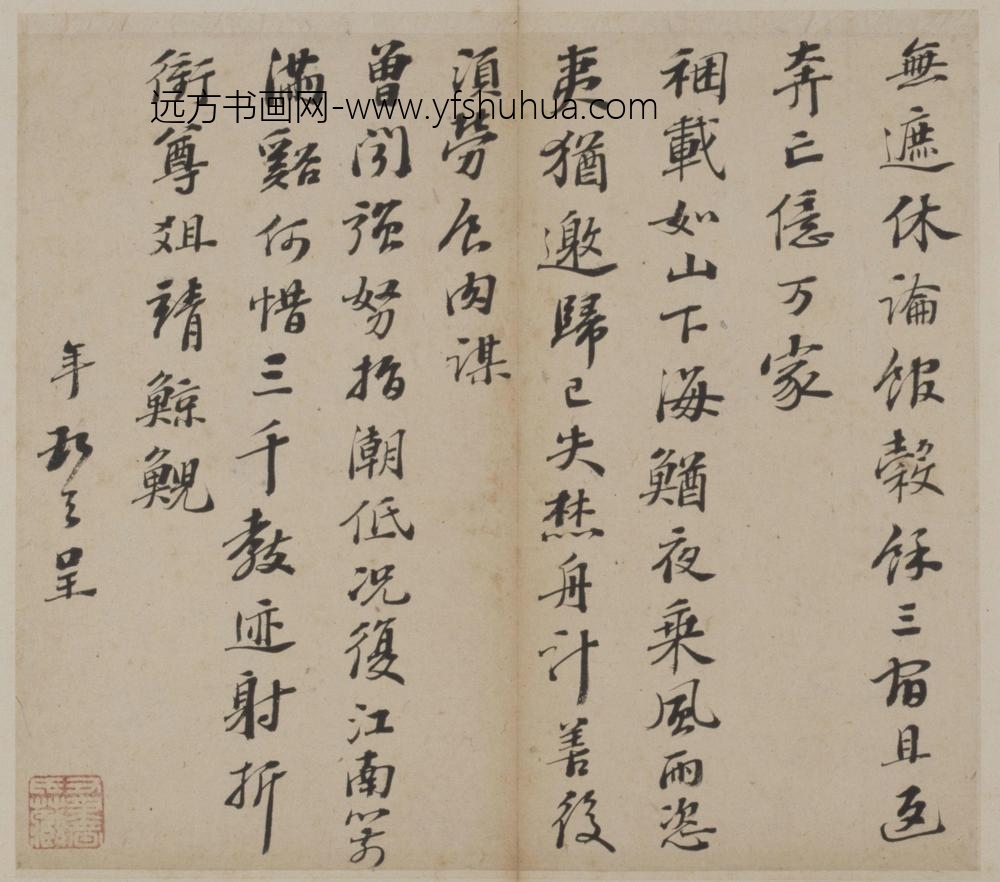 無遮休論館穀餘三宿且返
奔亡億万家
稇載如山下海鰌夜乘風雨恣
夷猶邀歸已失焚舟計善後
須勞食肉謀
曾聞強弩指潮低況復江南箭
滿谿何惜三千教迹射折
衝尊俎靖鯨鯢
年 呈
远方书画网-www.yfshuhua.com